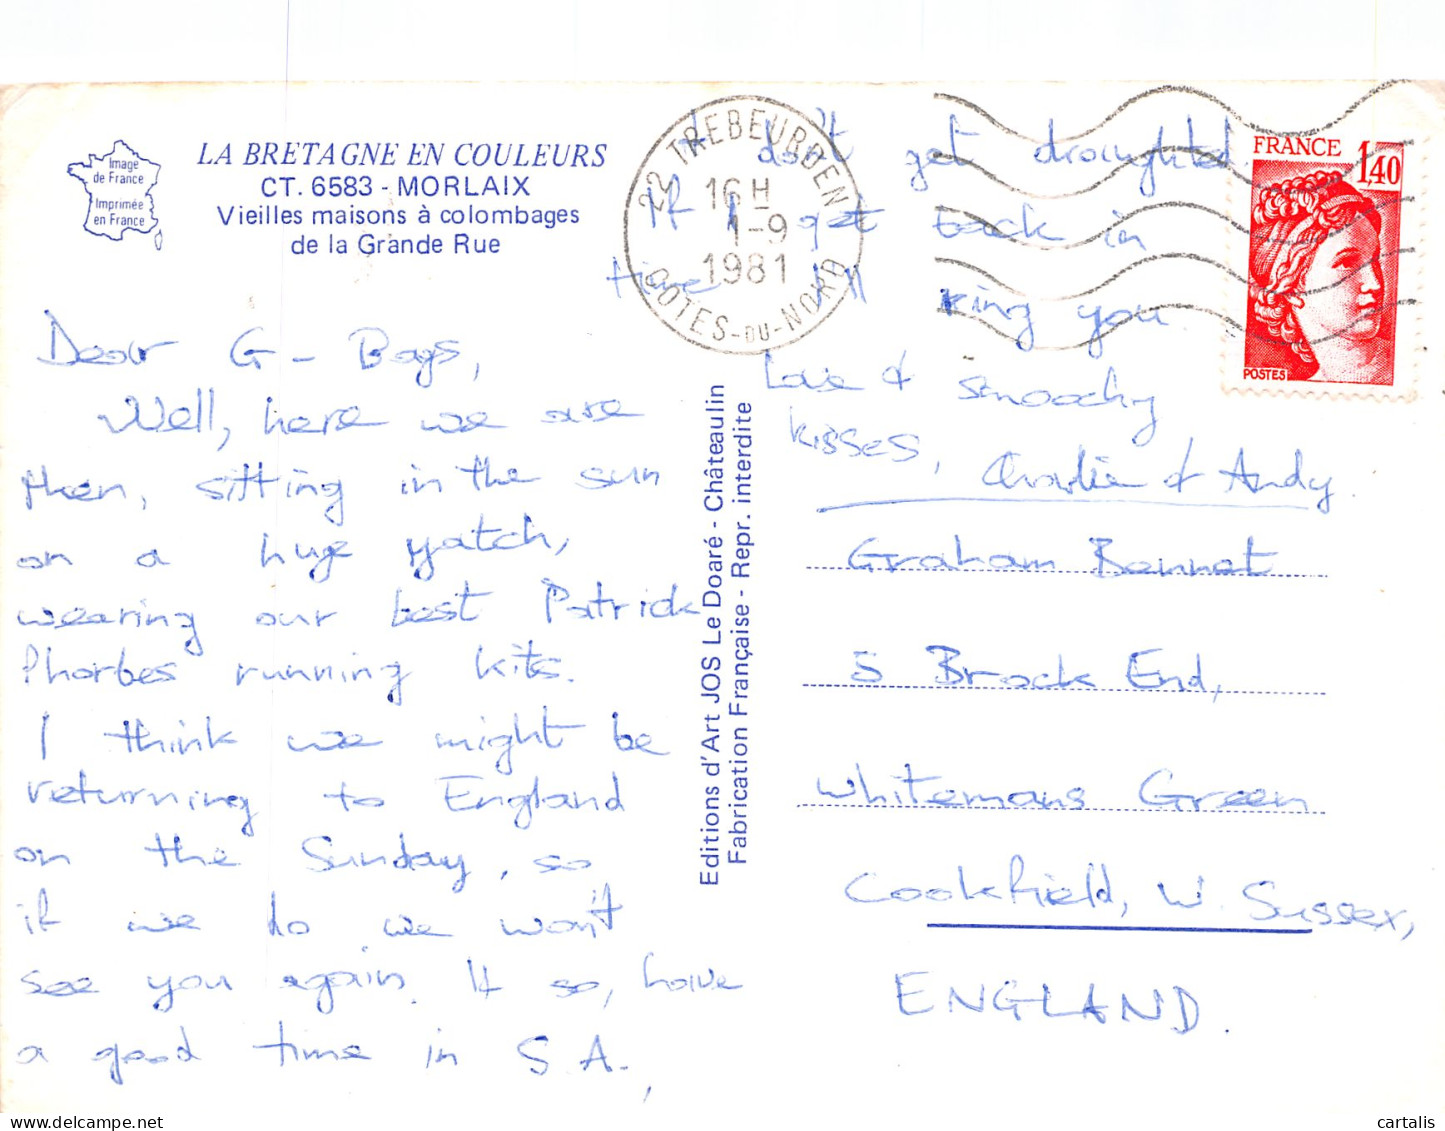 Image
de France
Imprimée
en France
LA BRETAGNE EN COULEURS
CT. 6583 - MORLAIX
Vieilles maisons à colombages
de la Grande Rue
Dear G - Bags,
Well, here we are
then, sitting in the sun
on a huge yatch,
wearing our best Patrick
Phorbes running kits.
I think we might be
returning to England
on the Sunday, so
if we do we won't
see you again. If so, have
a good time in S.A.,
22 TREBEURDEN
16 H
1-9
1981
COTES-DU-NORD
don't get droughted.
If I get back in
time I'll ring you.
Love & smoochy
kisses,
Charlie & Andy.
FRANCE
1,40
POSTES
Editions d'Art JOS Le Doaré - Châteaulin
Fabrication Française - Repr. interdite
Graham Bennet
5 Brock End,
Whitemans Green
Cookfield, W. Sussex,
ENGLAND.
cartalis